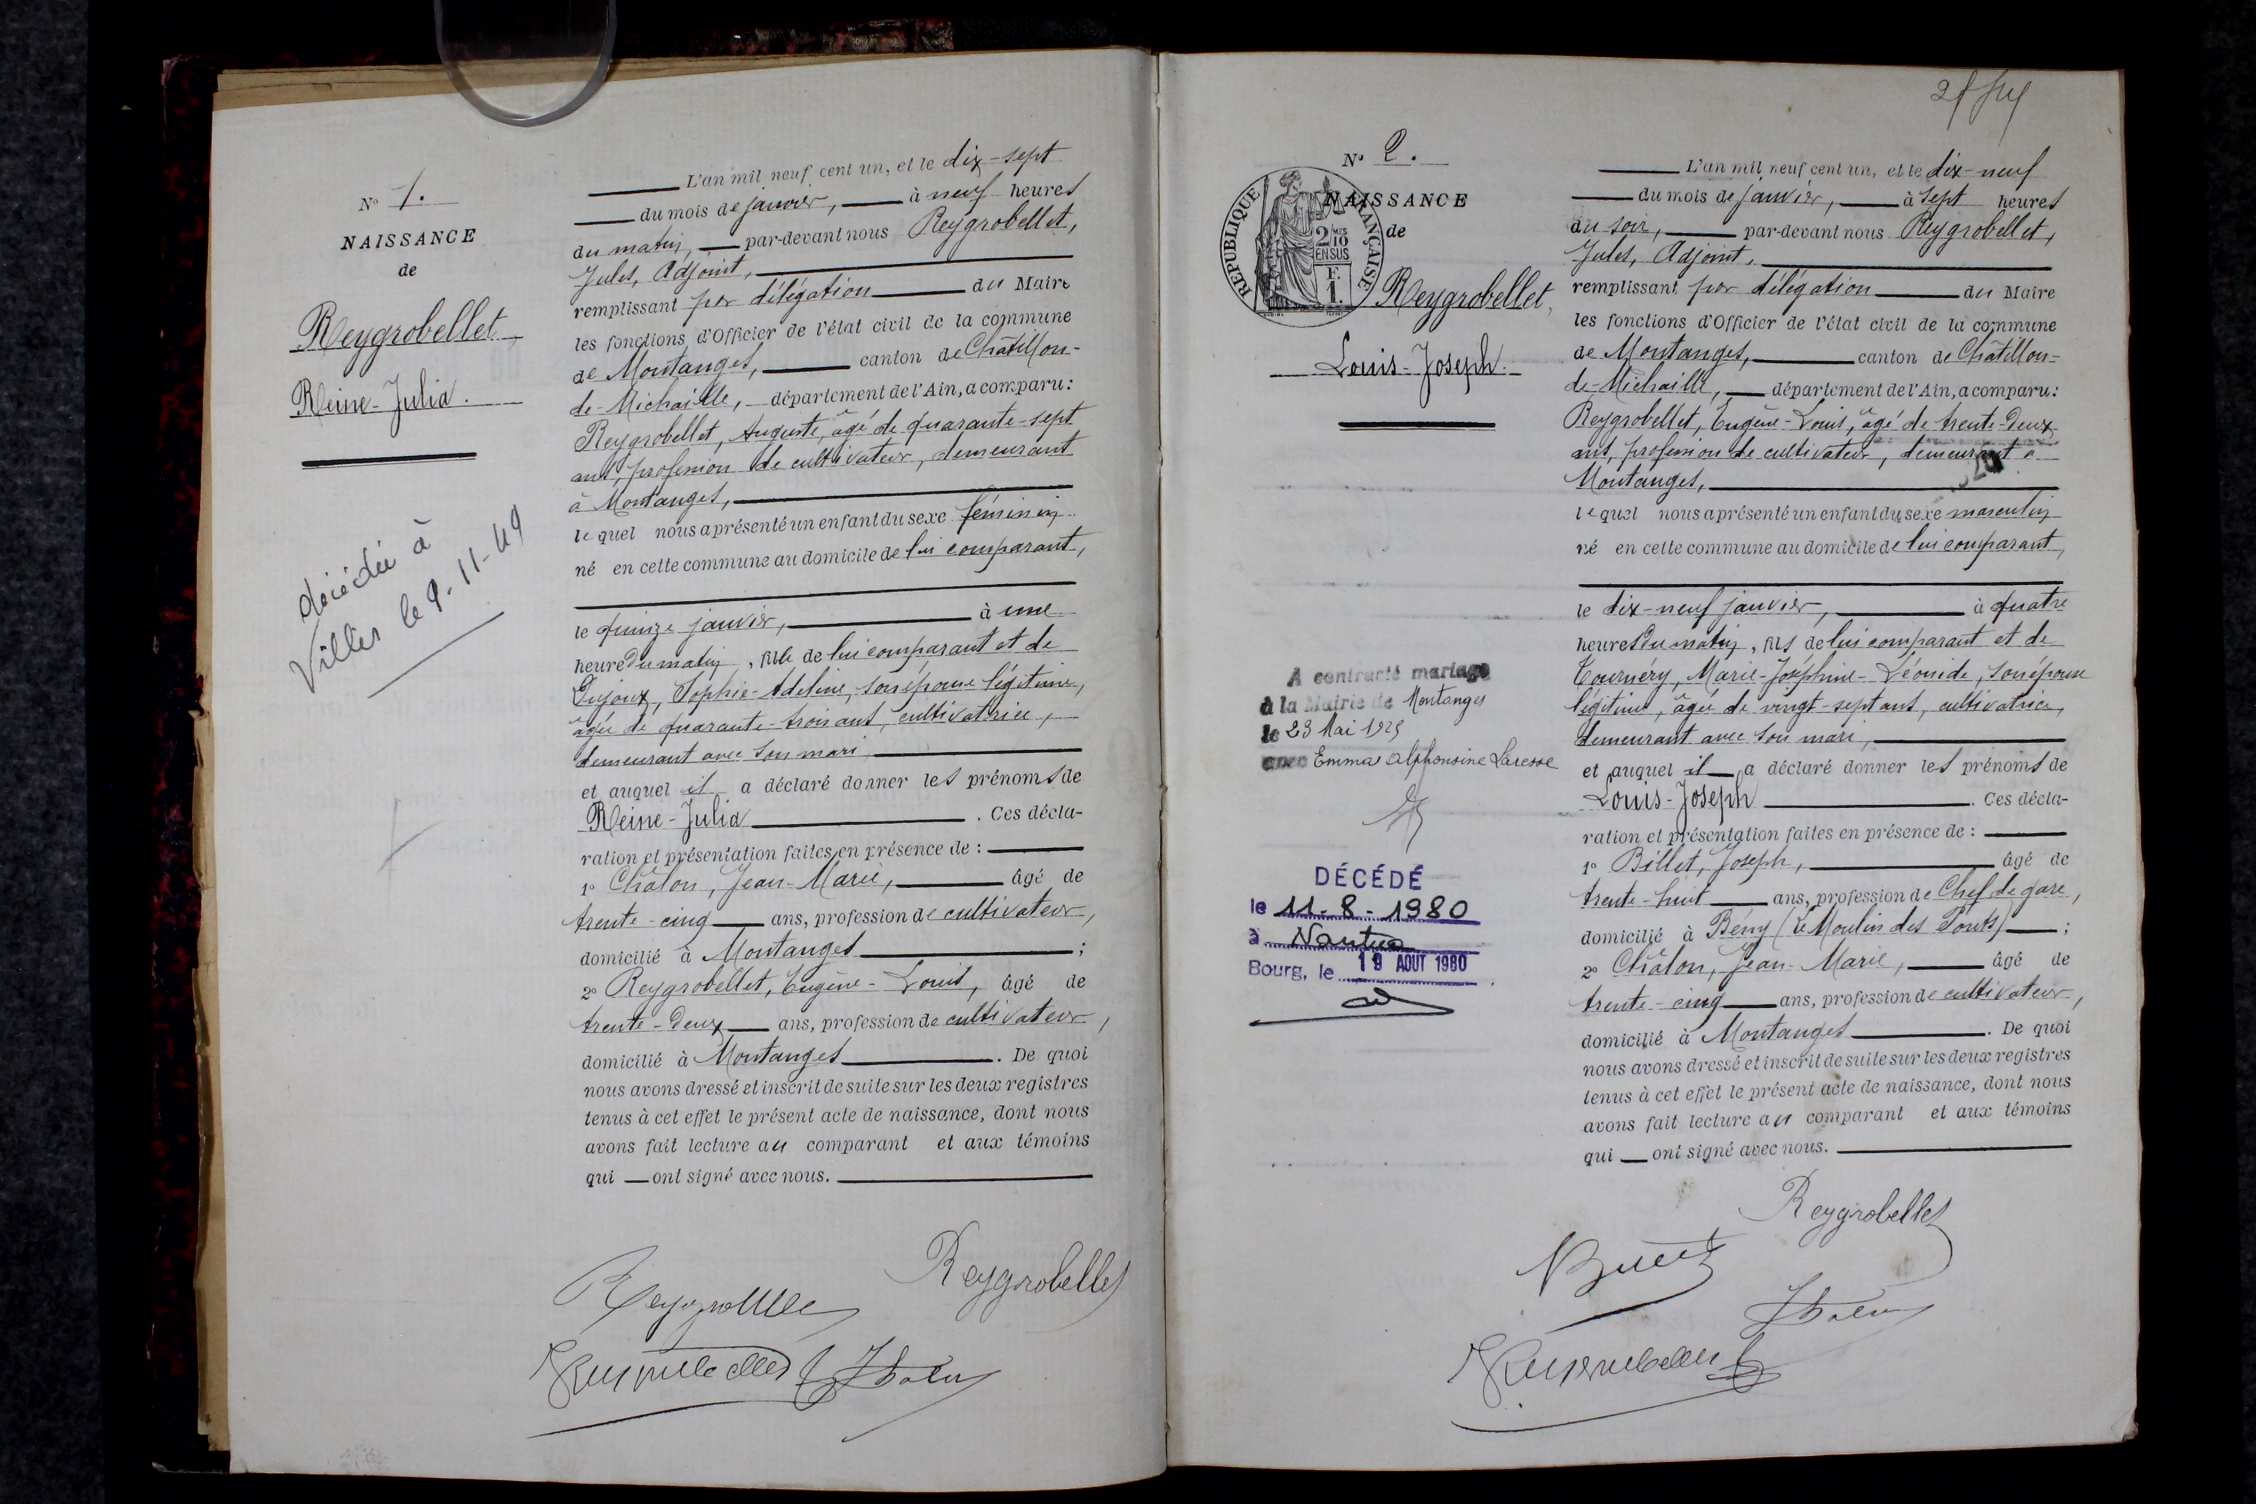 N° 1.
NAISSANCE
de
Reygrobellet
Reine-Julia.
décédée à
le 9-11-49
L'an mil neuf cent un, et le dix-sept
du mois de janvier, à neuf heures
du matin, par-devant nous Reygrobellet,
Jules, Adjoint,
remplissant par délégation du Maire
les fonctions d'Officier de l'état civil de la commune
de Montanges, canton de Châtillon-
de-Michaille, département de l'Ain, a comparu:
Reygrobellet, Auguste, âgé de quarante-sept
ans, profession de cultivateur, demeurant
à Montanges,
le quel nous a présenté un enfant du sexe féminin
né en cette commune au domicile de lui comparant,
le quinze janvier, à une
heure du matin, fille de lui comparant et de
Dujoux, Sophie-Adeline, son épouse légitime,
âgée de quarante-trois ans, cultivatrice,
demeurant avec son mari
et auquel il a déclaré donner les prénoms de
Reine-Julia. Ces décla-
ration et présentation faites en présence de :
1° Châlon, Jean-Marie, âgé de
trente-cinq ans, profession de cultivateur,
domicilié à Montanges ;
2° Reygrobellet, Eugène-Louis, âgé de
trente-deux ans, profession de cultivateur,
domicilié à Montanges. De quoi
nous avons dressé et inscrit de suite sur les deux registres
tenus à cet effet le présent acte de naissance, dont nous
avons fait lecture au comparant et aux témoins
qui ont signé avec nous.
Reygrobellet
N° 2.
RÉPUBLIQUE FRANÇAISE
2/10 EN SUS
F. 1.
NAISSANCE
de
Reygrobellet,
Louis-Joseph.
A contracté mariage
à la Mairie de Montanges
le 23 Mai 1925
avec Emma Alphonsine Laresse
DÉCÉDÉ
le 11-8-1980
à Nantua
Bourg, le 19 AOUT 1980
L'an mil neuf cent un, et le dix-neuf
du mois de janvier, à sept heures
du soir, par-devant nous Reygrobellet,
Jules, Adjoint,
remplissant par délégation du Maire
les fonctions d'Officier de l'état civil de la commune
de Montanges, canton de Châtillon-
de-Michaille, département de l'Ain, a comparu:
Reygrobellet, Eugène-Louis, âgé de trente-deux
ans, profession de cultivateur, demeurant à
Montanges,
le quel nous a présenté un enfant du sexe masculin
né en cette commune au domicile de lui comparant,
le dix-neuf janvier, à quatre
heures du matin, fils de lui comparant et de
Tournéry, Marie-Joséphine-Léonide, son épouse
légitime, âgée de vingt-sept ans, cultivatrice,
demeurant avec son mari,
et auquel il a déclaré donner les prénoms de
Louis-Joseph. Ces décla-
ration et présentation faites en présence de :
1° Billet, Joseph, âgé de
trente-huit ans, profession de Chef de gare,
domicilié à Bény (Le Moulin des Ponts) ;
2° Châlon, Jean-Marie, âgé de
trente-cinq ans, profession de cultivateur,
domicilié à Montanges. De quoi
nous avons dressé et inscrit de suite sur les deux registres
tenus à cet effet le présent acte de naissance, dont nous
avons fait lecture au comparant et aux témoins
qui ont signé avec nous.
Reygrobellet